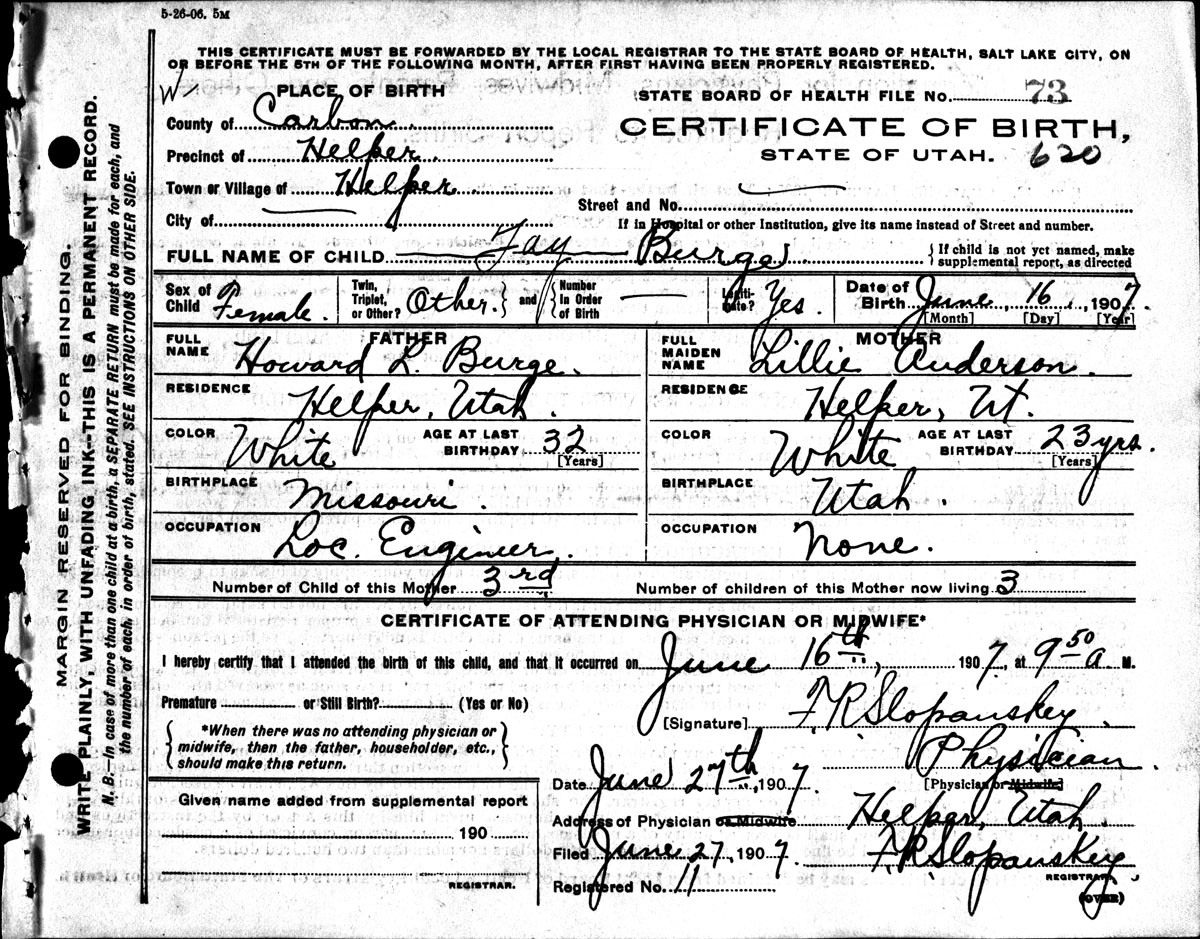 5-26-06. 5M
THIS CERTIFICATE MUST BE FORWARDED BY THE LOCAL REGISTRAR TO THE STATE BOARD OF HEALTH, SALT LAKE CITY, ON
OR BEFORE THE 5TH OF THE FOLLOWING MONTH, AFTER FIRST HAVING BEEN PROPERLY REGISTERED.
PLACE OF BIRTH
County of Carbon
Precinct of Helper
Town or Village of Helper
City of
STATE BOARD OF HEALTH FILE No. 73
CERTIFICATE OF BIRTH,
STATE OF UTAH. 620
Street and No.
If in Hospital or other Institution, give its name instead of Street and number.
FULL NAME OF CHILD Fay Burge
{If child is not yet named, make
supplemental report, as directed
Sex of Child Female.
Twin, Triplet, or Other? Other. } and { Number In Order of Birth
Legiti-mate? Yes.
Date of Birth June 16, 1907.
[Month] [Day] [Year]
FATHER
FULL NAME Howard L. Burge.
RESIDENCE Helper, Utah.
COLOR White AGE AT LAST BIRTHDAY 32
[Years]
BIRTHPLACE Missouri.
OCCUPATION Loc. Engineer.
MOTHER
FULL MAIDEN NAME Lillie Anderson.
RESIDENCE Helper, Ut.
COLOR White AGE AT LAST BIRTHDAY 23 yrs.
[Years]
BIRTHPLACE Utah.
OCCUPATION None.
Number of Child of this Mother 3rd Number of children of this Mother now living 3
CERTIFICATE OF ATTENDING PHYSICIAN OR MIDWIFE*
I hereby certify that I attended the birth of this child, and that it occurred on June 16th, 1907, at 9 50 a M.
Premature or Still Birth? (Yes or No)
{ *When there was no attending physician or
midwife, then the father, householder, etc.,
should make this return. }
[Signature] F R Slopanskey.
Physician.
[Physician or Midwife]
Date June 27th, 1907.
Address of Physician or Midwife Helper, Utah.
Filed June 27, 1907. F R Slopanskey
REGISTRAR.
Registered No. 11
(OVER)
Given name added from supplemental report
190
REGISTRAR.
MARGIN RESERVED FOR BINDING.
WRITE PLAINLY, WITH UNFADING INK--THIS IS A PERMANENT RECORD.
N. B.—In case of more than one child at a birth, a SEPARATE RETURN must be made for each, and
the number of each, in order of birth, stated. SEE INSTRUCTIONS ON OTHER SIDE.